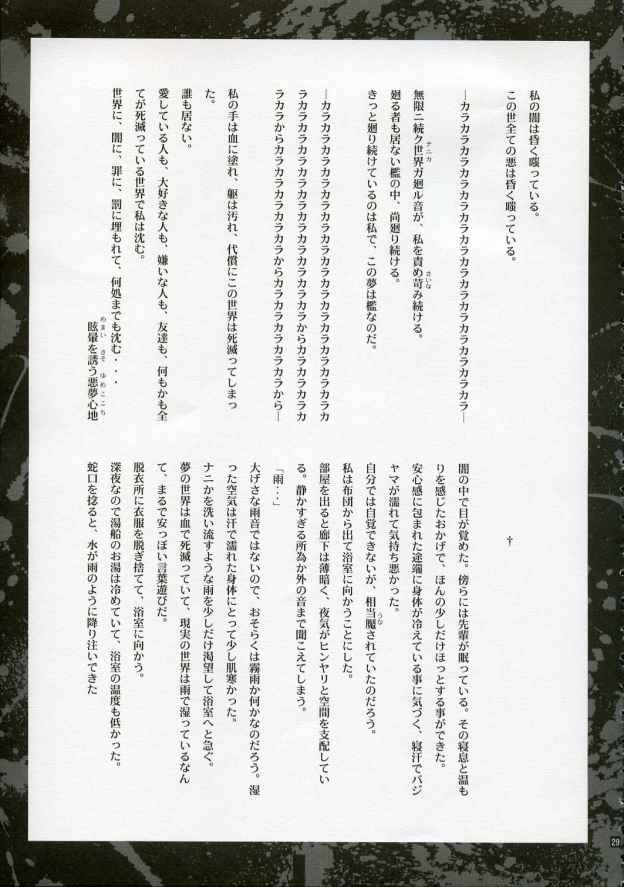 私の闇は昏く嗤っている。
この世全ての悪は昏く嗤っている。
―カラカラカラカラカラカラカラカラカラカラカラカラカラカラカラ―
無限ニ続ク世界ガ廻ル音が、私を責め苛み続ける。
廻る者も居ない檻の中、尚廻り続ける。
きっと廻り続けているのは私で、この夢は檻なのだ。
―カラカラカラカラカラカラカラカラカラカラカラカラカラカラカ
ラカラカラカラカラカラカラカラカラカラからカラカラカラカラカ
ラカラからカラカラカラカラカラからカラカラカラカラカラから―
私の手は血に塗れ、躯は汚れ、代償にこの世界は死滅ってしまっ
た。
誰も居ない。
愛している人も、大好きな人も、嫌いな人も、友達も、何もかも全
てが死滅っている世界で私は沈む。
世界に、闇に、罪に、罰に埋もれて、何処までも沈む・・・
眩暈を誘う悪夢心地
†
闇の中で目が覚めた。傍らには先輩が眠っている。その寝息と温も
りを感じたおかげで、ほんの少しだけほっとする事ができた。
安心感に包まれた途端に身体が冷えている事に気づく、寝汗でパジ
ャマが濡れて気持ち悪かった。
自分では自覚できないが、相当魘されていたのだろう。
私は布団から出て浴室に向かうことにした。
部屋を出ると廊下は薄暗く、夜気がヒンヤリと空間を支配してい
る。静かすぎる所為か外の音まで聞こえてしまう。
「雨・・・」
大げさな雨音ではないので、おそらくは霧雨か何かなのだろう。湿
った空気は汗で濡れた身体にとって少し肌寒かった。
ナニかを洗い流すような雨を少しだけ渇望して浴室へと急ぐ。
夢の世界は血で死滅っていて、現実の世界は雨で湿っているなん
て、まるで安っぽい言葉遊びだ。
脱衣所に衣服を脱ぎ捨てて、浴室に向かう。
深夜なので湯船のお湯は冷めていて、浴室の温度も低かった。
蛇口を捻ると、水が雨のように降り注いできた
29